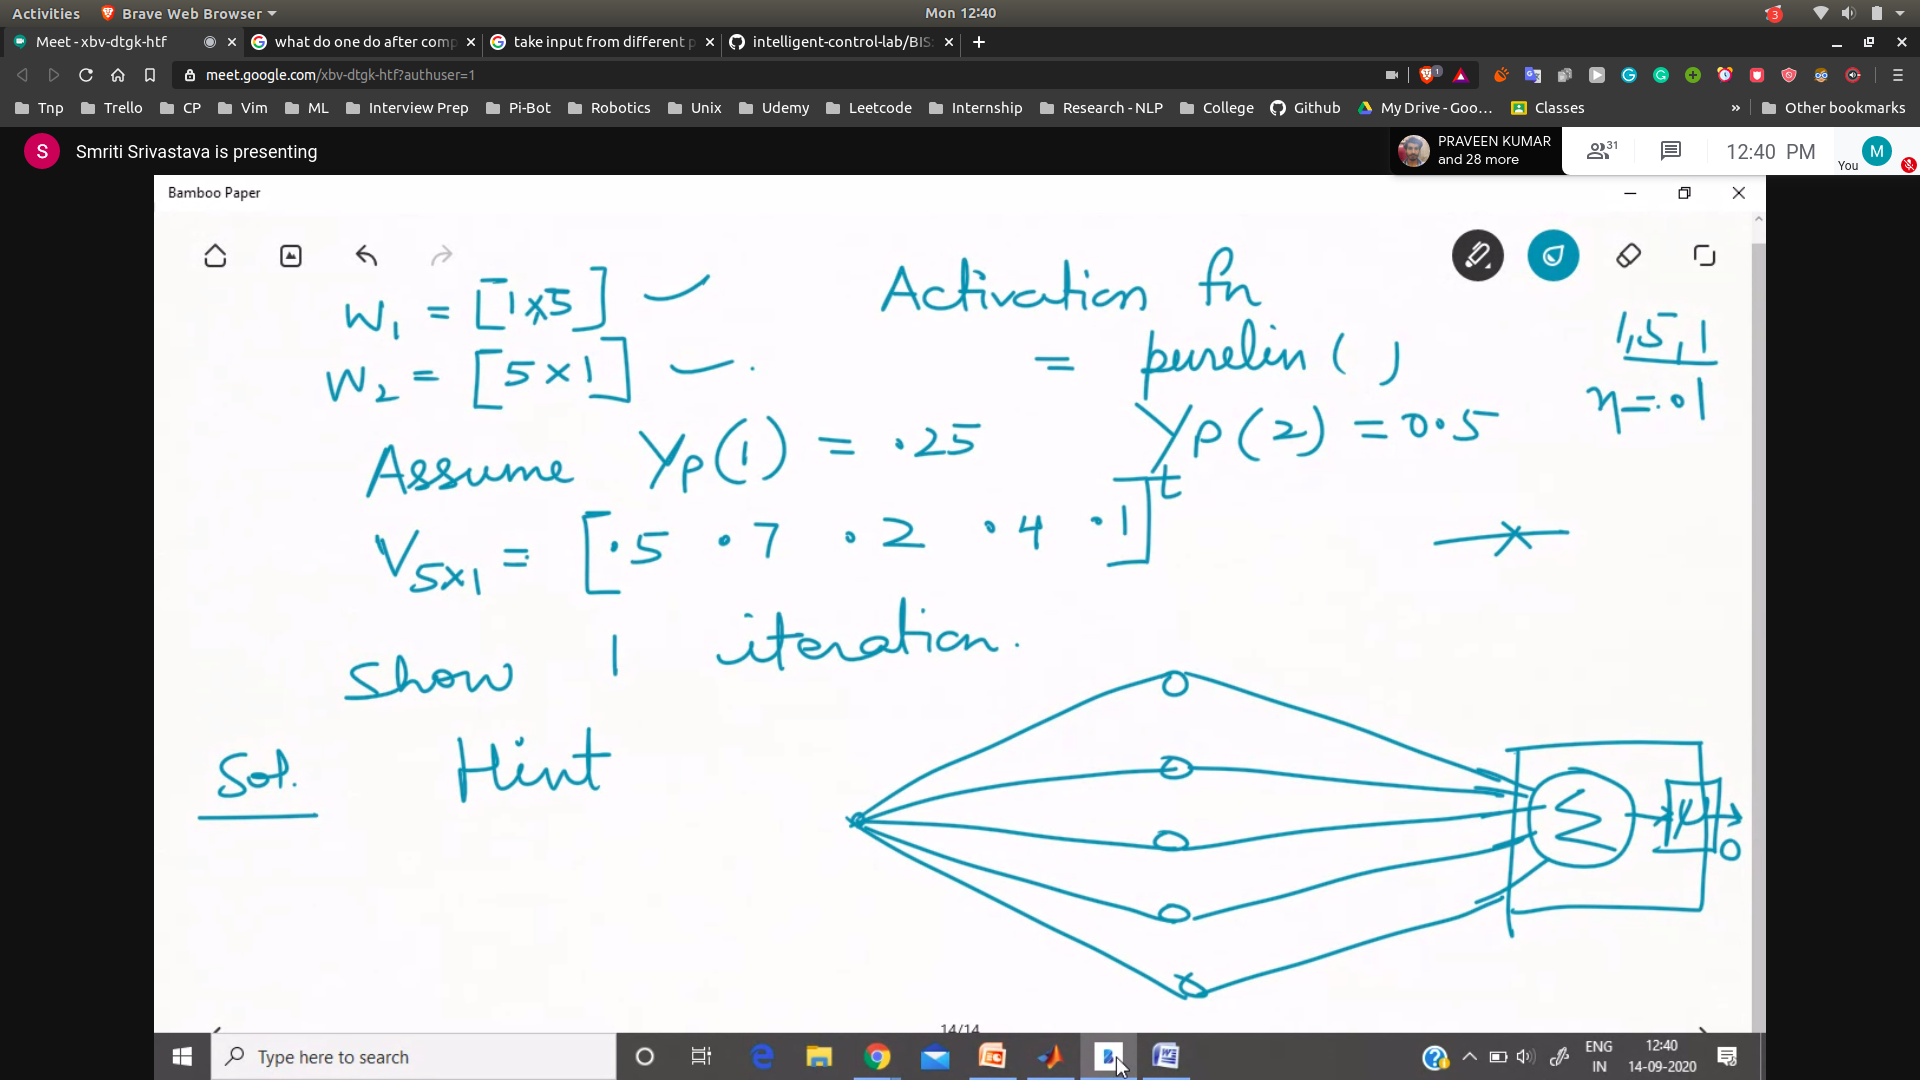 Activities Brave Web Browser Mon 12:40 3
Meet - xbv-dtgk-htf what do one do after comp take input from different p intelligent-control-lab/BIS
meet.google.com/xbv-dtgk-htf?authuser=1 1
Tnp Trello CP Vim ML Interview Prep Pi-Bot Robotics Unix Udemy Leetcode Internship Research - NLP College Github My Drive - Goo... Classes » Other bookmarks
S Smriti Srivastava is presenting PRAVEEN KUMAR and 28 more 31 12:40 PM You M
Bamboo Paper
W1 = [1×5] Activation fn
W2 = [5×1] = purelin ( ) 1,5,1
η=.01
Assume Yp(1) = .25 Yp(2) = 0.5
V5×1 = [.5 .7 .2 .4 .1]t
Show 1 iteration.
Sol. Hint
Σ ψ O
14/14
Type here to search ENG IN 12:40 14-09-2020